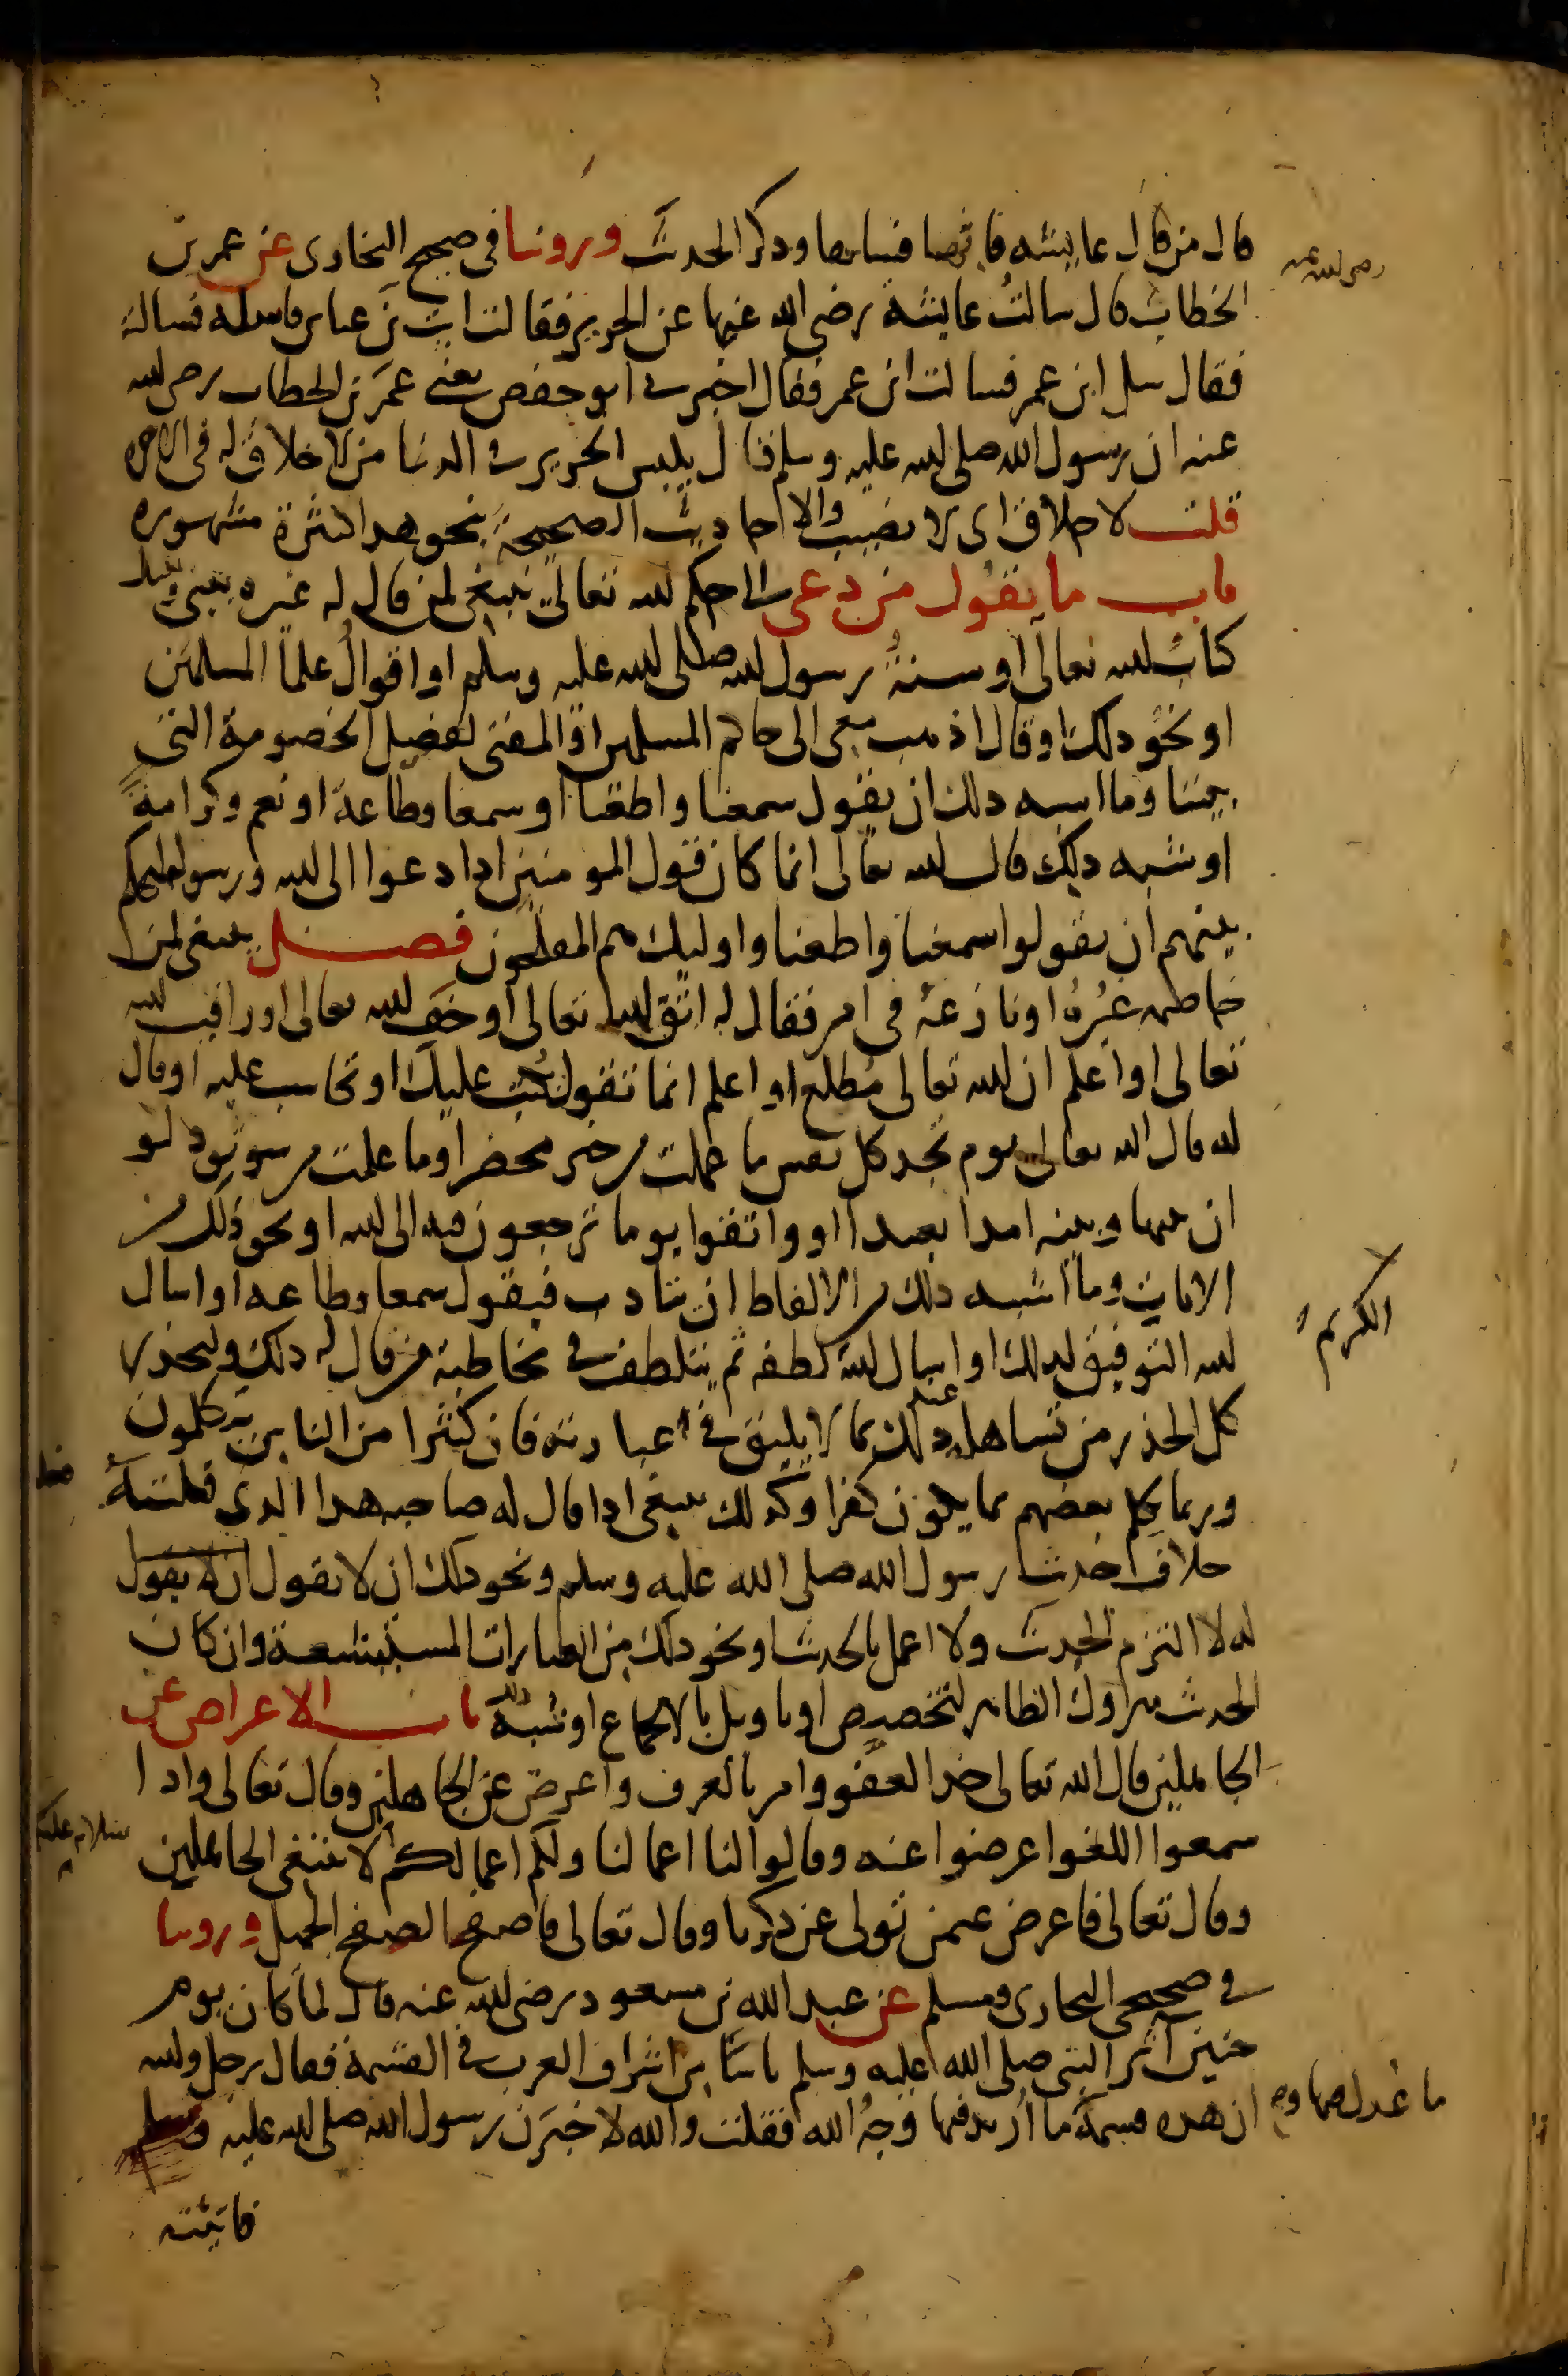 قال من قال عايشة فاتها فسالها وذكر الحديث وروينا في صحيح البخارى عن عمرن
رضى الله عنه
الخطاب قال سالت عايشة رضى الله عنها عن الحرير فقالت ايت بن عباس فاسله فسالته
فقال سل ابن عمر فسالت ابن عمر فقال اخبرنى ابو حفص يعنى عمر بن الخطاب رضى الله
عنه ان رسول الله صلى الله عليه وسلم قال يلبس الحرير فى الدنيا من لا خلاق له فى الاخره
قلت لا خلاق اى لا نصيب والاحاديث الصحيحة بنحو هذا كثيرة مشهورة
باب ما يقول من دعى الى حكم الله تعالى ينبغى لمن قال له غيره بينى وبينك
كتاب الله تعالى او سنة رسول الله صلى الله عليه وسلم او اقوال علما المسلمين
او نحو ذلك او قال اذهب معى الى حاكم المسلمين او المفتى لفصل الخصومة التى
بيننا وما اشبه ذلك ان يقول سمعنا واطعنا او سمعا وطاعة او نعم وكرامة
او شبه ذلك قال الله تعالى انما كان قول المومنين اذا دعوا الى الله ورسوله ليحكم
بينهم ان يقولوا سمعنا واطعنا واوليك هم المفلحون فصل ينبغى لمن
خاصمه غيره او نازعه فى امر فقال له اتق الله تعالى او خف الله تعالى او راقب الله
تعالى او اعلم ان الله تعالى مطلع او اعلم انما تقول يكتب عليك او تحاسب عليه او قال
له قال الله تعالى يوم تجد كل نفس ما عملت من خير محضرا وما عملت من سو تود لو
ان بينها وبينه امدا بعيدا او واتقوا يوما ترجعون فيه الى الله او نحو ذلك من
الايات وما اشبه ذلك من الالفاظ ان يتادب فيقول سمعا وطاعه او اسال
الله التوفيق لذلك او اسال الله لطفه ثم يتلطف فى مخاطبة من قال له ذلك وليحذر
الكريم
كل الحذر من تساهله عند ذلك بما لا يليق فى عبارته فان كثيرا من الناس يتكلمون
وربما تكلم بعضهم بما يكون كفرا وكذلك ينبغى اذا قال له صاحبه هذا الذى فعلته
خلاف حديث رسول الله صلى الله عليه وسلم ونحو ذلك ان لا يقول ان لا يقول
له لا التزم الحديث ولا اعمل بالحديث او نحو ذلك من العبارات المستبشعة وان كان
الحديث متروك الظاهر لتخصيص او تاويل بالاجماع او شبه ذلك باب الاعراض عن
الجاهلين قال الله تعالى خذ العفو وامر بالعرف واعرض عن الجاهلين وقال تعالى واذا
سمعوا اللغو اعرضوا عنه وقالوا لنا اعمالنا ولكم اعمالكم لا نبتغى الجاهلين
سلام عليكم
وقال تعالى فاعرض عمن تولى عن ذكرنا وقال تعالى فاصفح الصفح الجميل وروينا
فى صحيحى البخارى ومسلم عن عبد الله بن مسعود رضى الله عنه قال لما كان يوم
حنين آثر النبى صلى الله عليه وسلم ناسا من اشراف العرب فى القسمة فقال رجل والله
ان هذه قسمة ما اريد فيها وجه الله فقلت والله لاخبرن رسول الله صلى الله عليه وسلم
ما عدل فيها و
فاتيته